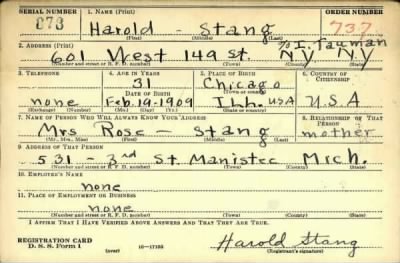 SERIAL NUMBER 1. NAME (Print) ORDER NUMBER
873 Harold - Stang 737
(First) (Middle) (Last)
2. ADDRESS (Print) % I. Tauman
601 West 149 St. N.Y. N.Y
(Number and street or R. F. D. number) (Town) (County) (State)
3. TELEPHONE 4. AGE IN YEARS 5. PLACE OF BIRTH 6. COUNTRY OF CITIZENSHIP
31 Chicago
DATE OF BIRTH (Town or county)
none Feb. 19-1909 Ill. USA U.S.A
(Exchange) (Number) (Mo.) (Day) (Yr.) (State or country)
7. NAME OF PERSON WHO WILL ALWAYS KNOW YOUR ADDRESS 8. RELATIONSHIP OF THAT PERSON
Mrs Rose - Stang mother
(Mr., Mrs., Miss) (First) (Middle) (Last)
9. ADDRESS OF THAT PERSON
531 - 3rd St. Manistee Mich.
(Number and street or R. F. D. number) (Town) (County) (State)
10. EMPLOYER'S NAME
none
11. PLACE OF EMPLOYMENT OR BUSINESS
none
(Number and street or R. F. D. number) (Town) (County) (State)
I AFFIRM THAT I HAVE VERIFIED ABOVE ANSWERS AND THAT THEY ARE TRUE.
REGISTRATION CARD
D. S. S. Form 1 (over) 16-17105 Harold Stang
(Registrant's signature)